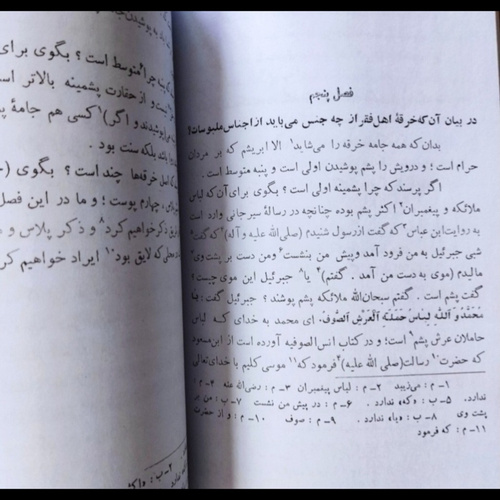 فصل پنجم
در بیان آن که خرقهٔ اهل فقر از چه جنس می‌باید از اجناس ملبوسات
بدان که همه جامه خرقه را می‌شاید¹ الا ابریشم که بر مردان
حرام است؛ و درویش را پشم پوشیدن اولی است و پنبه متوسط است.
اگر پرسند که چرا پشمینه اولی است؟ بگوی برای آن که لباس
ملائکه و پیغمبران² اکثر پشم بوده چنانچه در رسالهٔ سیرجانی وارد است
به روایت ابن عباس³ که گفت از رسول شنیدم (صلی الله علیه و آله)⁴ که گفت⁵
شبی جبرئیل به من فرود آمد و پیش من بنشست⁶ ومن دست بر پشت وی⁷
مالیدم (موی به دست من آمد. گفتم)⁸ یا جبرئیل این موی چیست؟
گفت پشم است. گفتم سبحان‌الله ملائکه پشم پوشند؟ جبرئیل گفت: یا
مُحَمَّدُ وَ اللّهِ لِباسُ حَمَلَةِ الْعَرْشِ الصُّوفُ. ای محمد به خدای که لباس
حاملان عرش پشم⁹ است؛ و در کتاب انس‌الصوفیه آورده است از ابن مسعود
که حضرت¹⁰ رسالت (صلی الله علیه) فرمود که¹¹ موسی کلیم با خدای تعالی
۱ـ م : می‌زیبد ۲ـ م : لباس پیغمبران ۳ـ م : رضی‌الله عنه ۴ـ م :
ندارد. ۵ـ ب : «که» ندارد. ۶ـ م : در پیش من نشست ۷ـ ب : من بر
پشت وی ۸ـ ب : «یا» ندارد. ۹ـ م : صوف ۱۰ـ م : و از حضرت
۱۱ـ م : که فرمود
پنبه چرا متوسط است؟ بگوی برای
است و از حقارت پشمینه بالاتر
پوشیدند و اگر) کسی هم جامهٔ
باشد بلکه سنت بود.
اصل خرقه‌ها چند است؟ بگوی
چهارم پوست؛ و ما در این فصل
ذکر خواهیم کرد⁸ و ذکر پلاس و
محلی که لایق بود¹⁰ ایراد خواهیم کرد